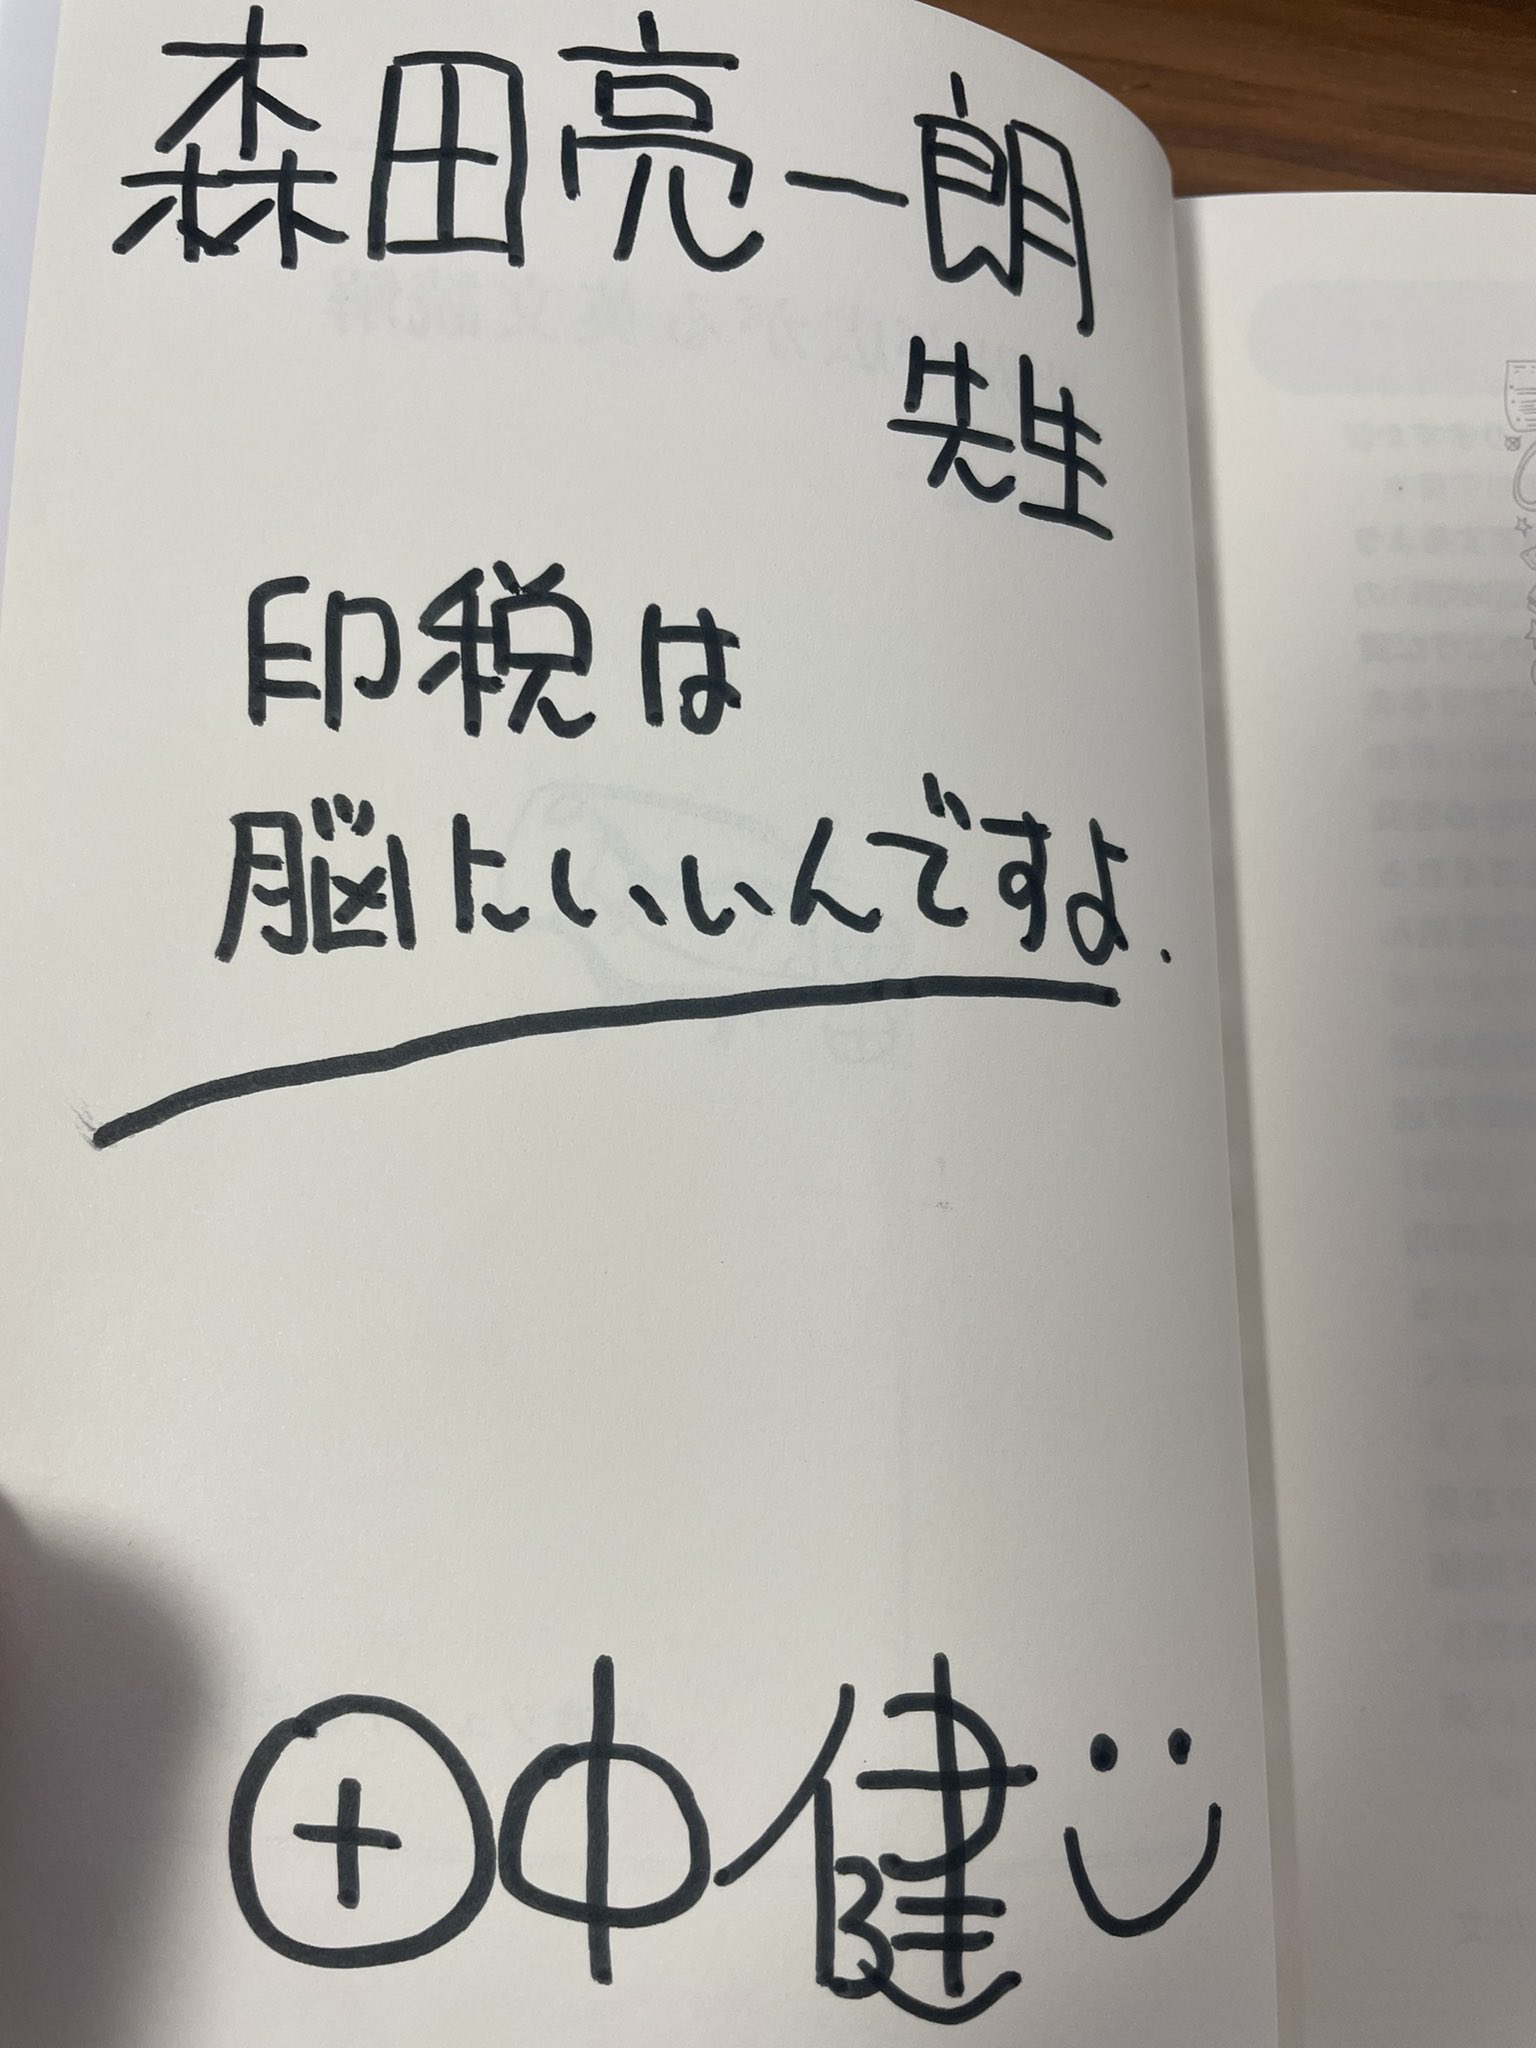 森田亮一朗
先生
印税は
脳にいいんですよ.
田中健